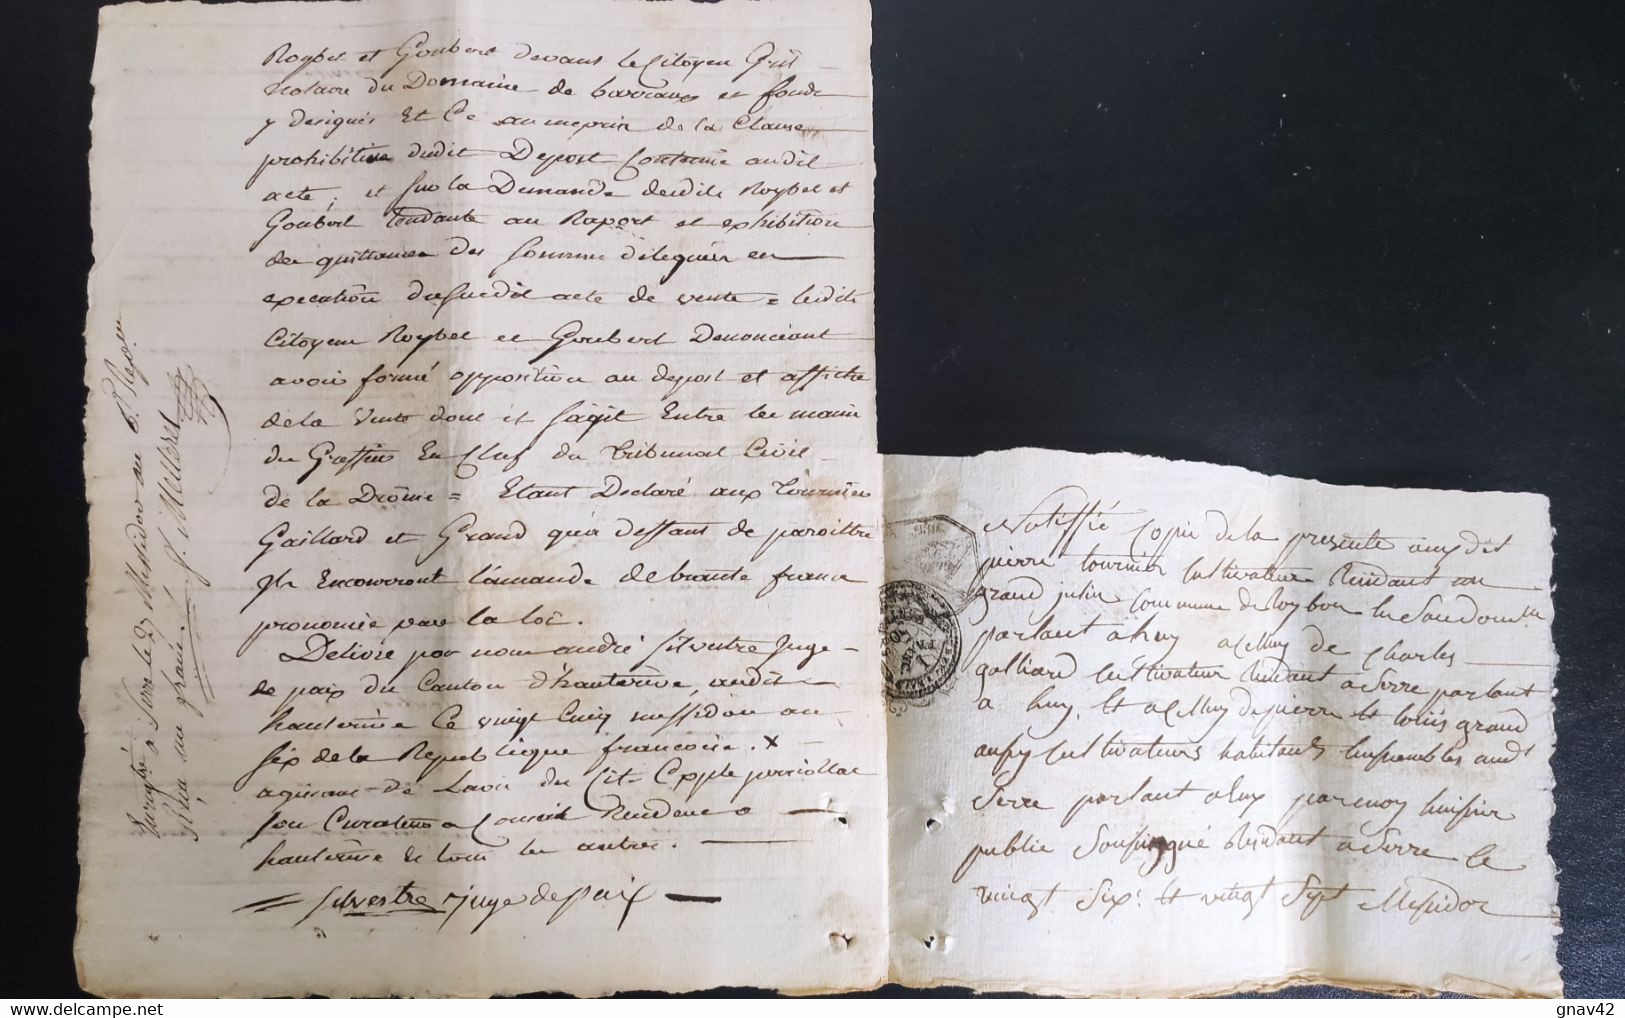 Roybet et Goubert devant le Citoyen
Notaire du Domaine de barraux et fonds
y designés Et Ce au mepris de la Clause
prohibitive dudit Depost Contenue audit
acte, et sur la Demande desdits Roybet et
Goubert tendante au Raport et exhibition
des quittances des sommes deleguées en
execution dususdit acte de vente = lesdits
Citoyens Roybet et Goubert Denonceant
avoir formé opposition au depost et affiche
de la vente dont il s'agit Entre les mains
du Greffier En Chef du Tribunal Civil
de la Drôme = Etant Declaré aux Tournier
Gaillard et Grand qu'a deffaut de paroittre
ils Encourront l'amande de trante francs
prononcée par la loi.
Delivré par nous andré Silvestre Juge
de paix du Canton d'hauterive, audit
hauterive Ce vingt Cinq messidor an
six de la Republique francoise. X
agissant de Lavis du Cit.
son Curateur Residence a
hauterive et tous les autres.
Silvestre Juge de paix
Enregistré à Serre le 27 Messidor an 6. Reçu
Notiffié Copie de la presente auxdit
pierre tournier Cultivateur Residant au
grand julin Commune de Roybon en son domle
parlant a luy a Celluy de Charles
galliard Cultivateur Residant a Serre parlant
a luy, Et a Celluy de pierre Et louis grand
Cultivateurs habitants Ensembles aud
Serre parlant a luy par moy huissier
public Soussigné Residant a Serre le
vingt Six: Et vingt Sept Messidor
gnav42